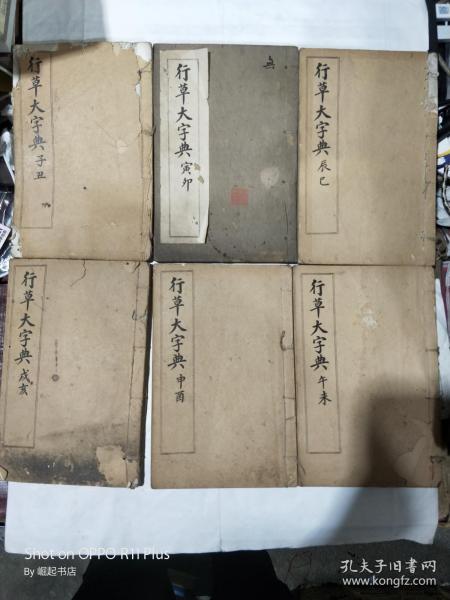 行草大字典 子丑
行草大字典 寅卯
行草大字典 辰巳
行草大字典 戌亥
行草大字典 申酉
行草大字典 午未
Shot on OPPO R11 Plus
By 崛起书店
孔夫子旧书网
www.kongfz.com